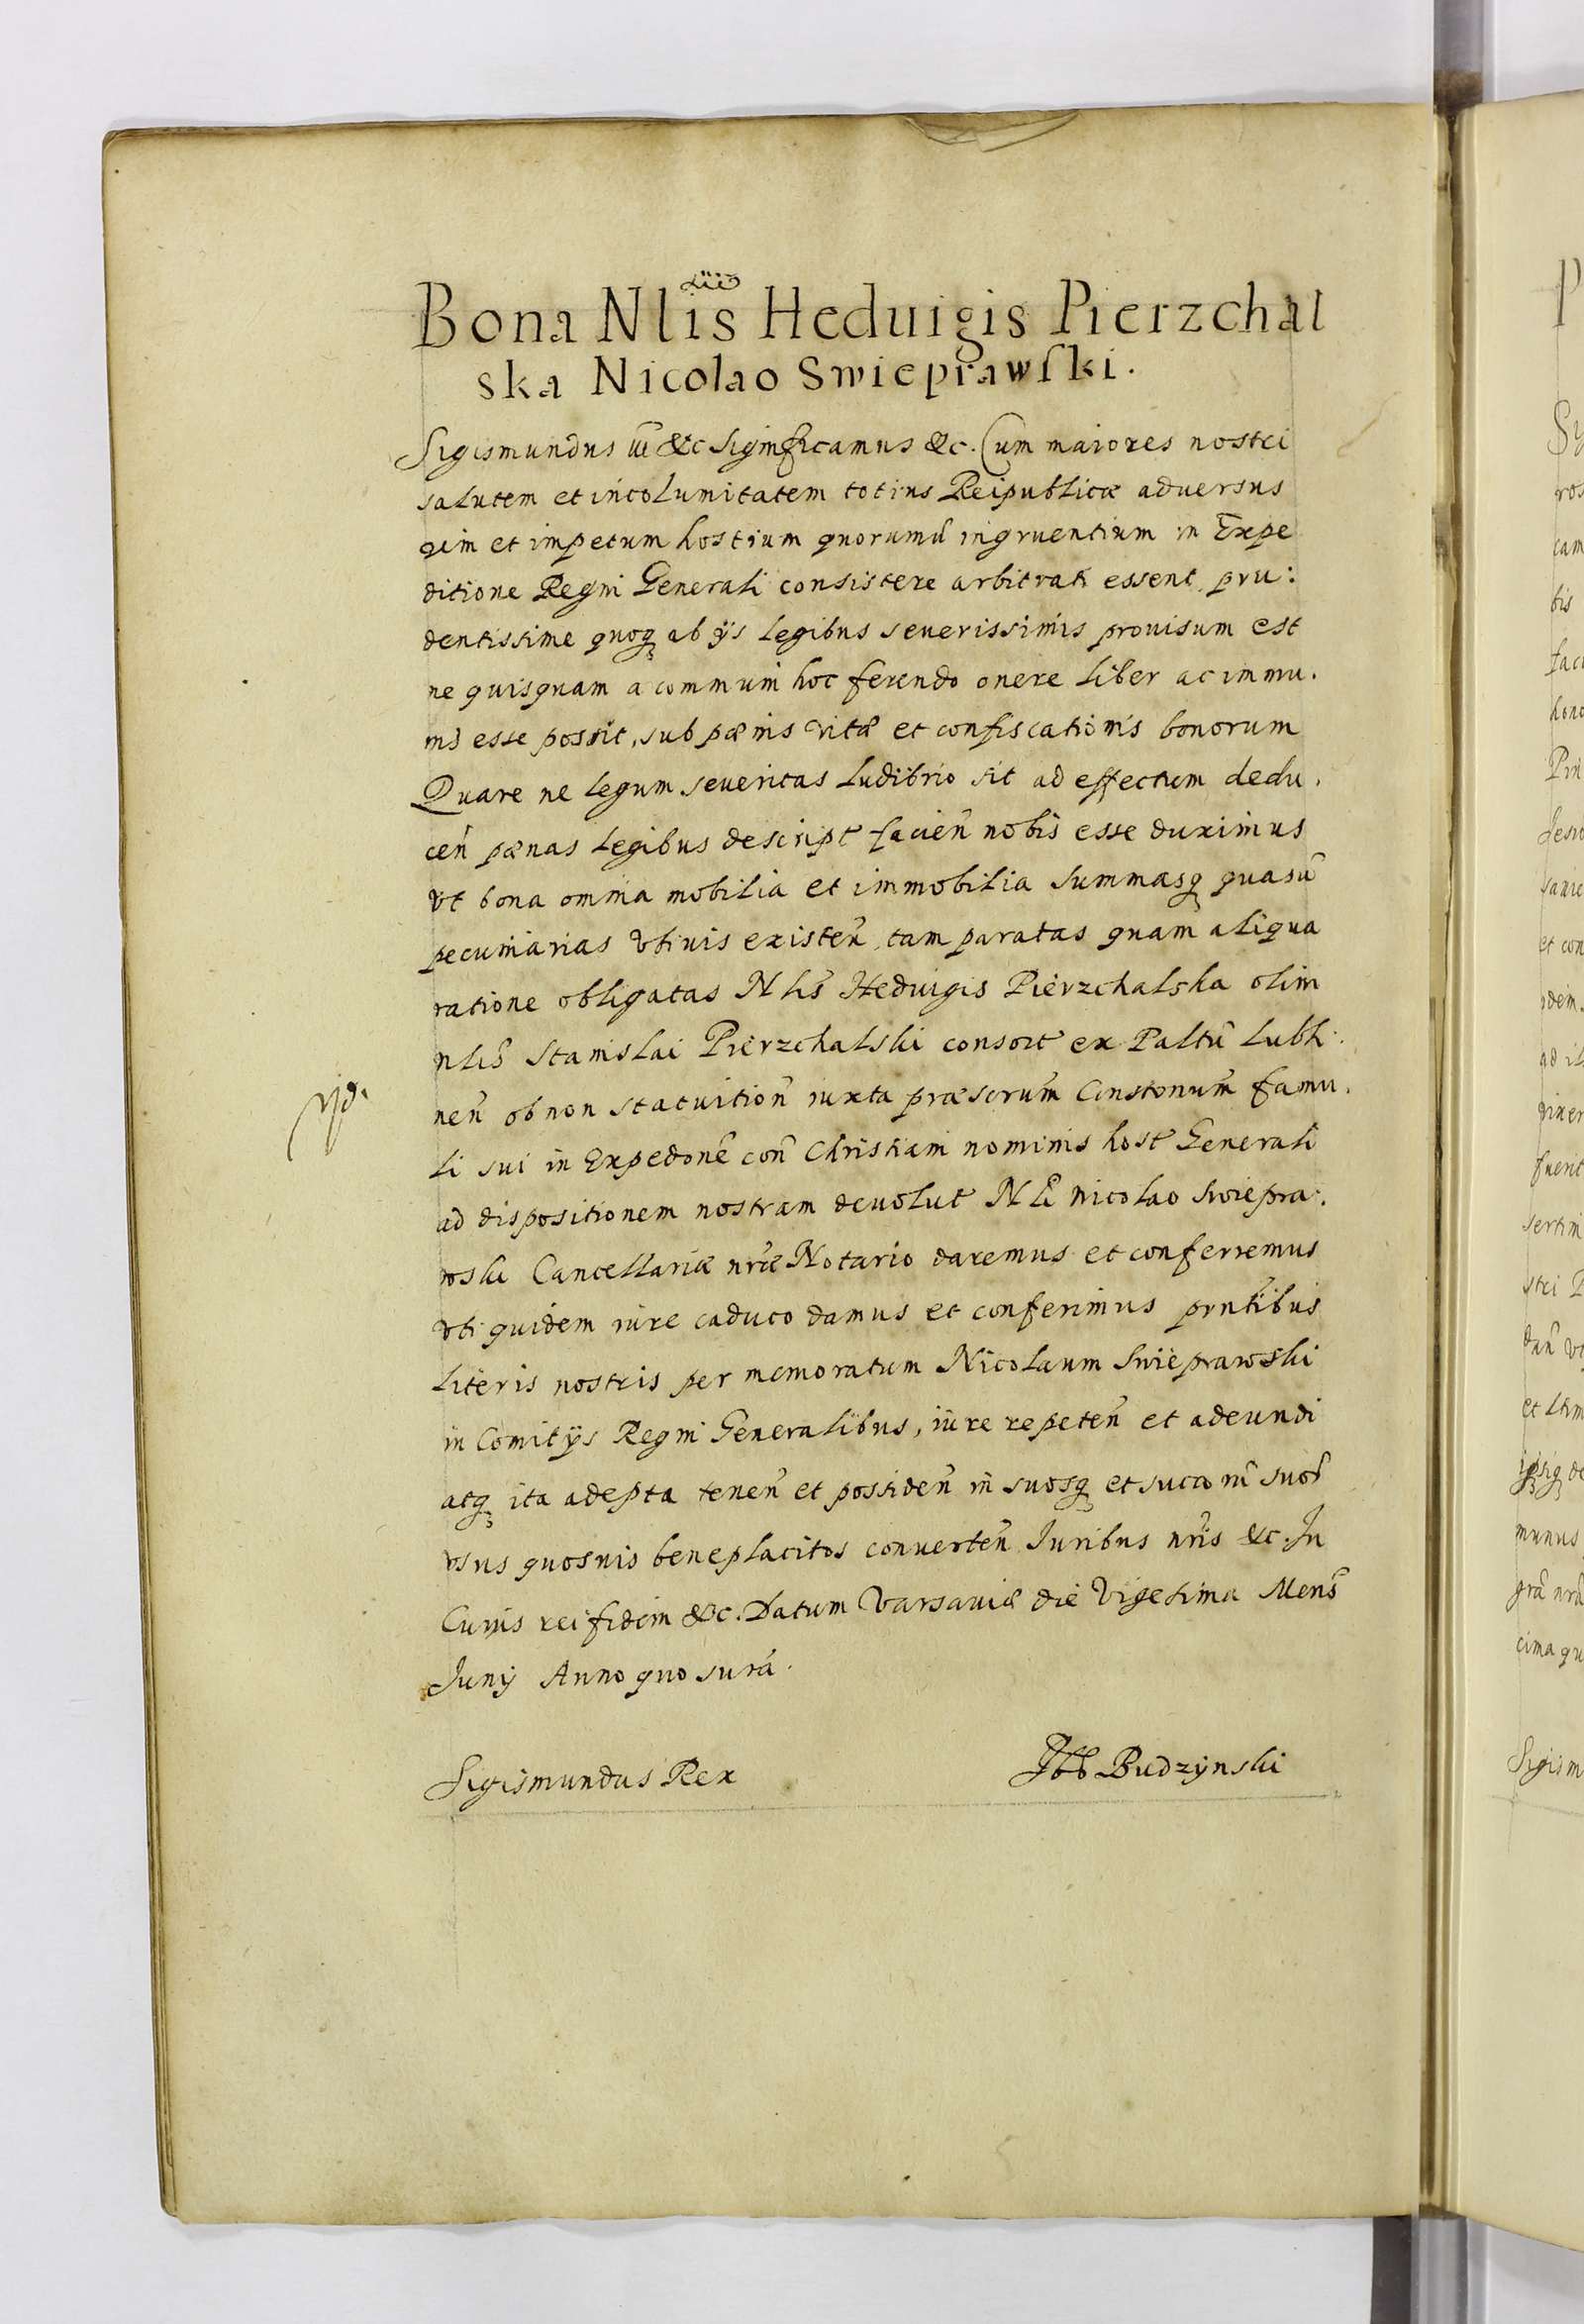 Bona Nlis Heduigis Pierzchal
ska Nicolao Swieprawski.
Sigismundus iii &c Significamus &c. Cum maiores nostri
salutem et incolumitatem totius Reipublicæ aduersus
uim et impetum hostium quorumũ ingruentium in Expe
ditione Regni Generali consistere arbitrati essent pru:
dentissime quoq ab ijs legibus seuerissimis prouisum est
ne quisquam a communi hoc ferendo onere liber ac immu.
nis esse possit, sub pœnis vitæ et confiscationis bonorum
Quare ne legum seueritas ludibrio sit ad effectum dedu.
ceñ pœnas legibus descript facieñ nobis esse duximus
vt bona omnia mobilia et immobilia summasq quasũ
pecuniarias vbiuis existeñ tam paratas quam aliqua
ratione obligatas Nlis Heduigis Pierzchalska olim
nlis Stanislai Pierzchalski consort ex Paltũ Lubli.
neñ ob non statuitioñ iuxta præscrum Constonum famu.
li sui in Expedonẽ coñ Christiani nominis host Generali
ad dispositionem nostram deuolut Nli Nicolao Swiepra.
wski Cancellariæ nræ Notario daremus et conferremus
vti quidem iure caduco damus et conferimus pntibus
literis nostris per memoratum Nicolaum Swieprawski
in Comitijs Regni Generalibus, iure repeteñ et adeundi
atq ita adepta teneñ et possideñ in suosq et succorũ suor
vsus quosuis beneplacitos conuerteñ Iuribus nris &c. In
Cuius rei fidem &c. Datum Varsauiæ die Vigesima Mens
Iunij Anno quo supra.
Sigismundus Rex
Budzynski